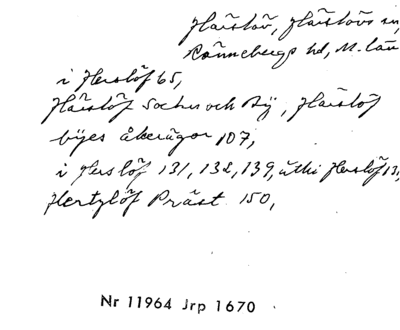 Härslöv, Härslövs sn,
Rönnebergs hd, M. län
i Herslöf 65,
Härslöf Sochn och By, Härslöf
byes åkerägor 107,
i Herslöf 131, 138, 139, uthi Herslöf 131,
Hertzlöf Präst 150,
Nr 11964 Jrp 1670